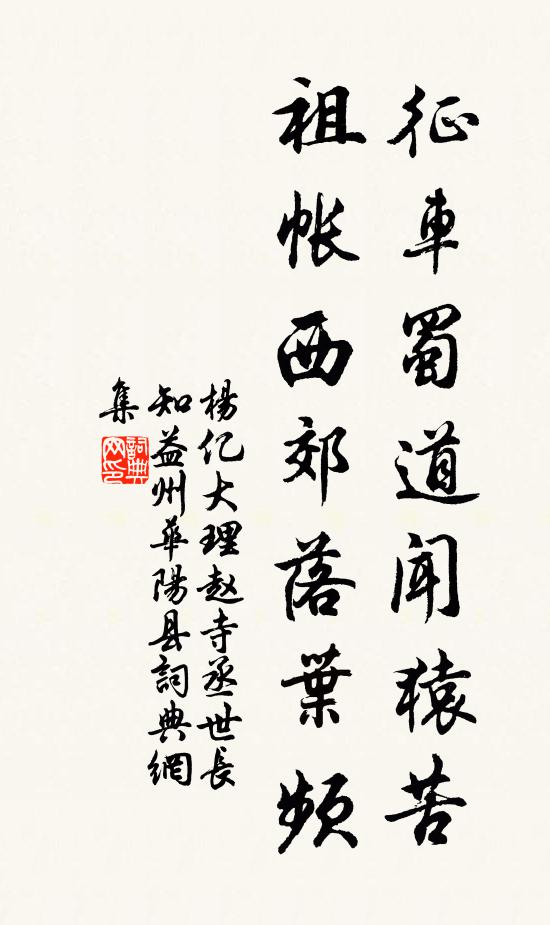 征車蜀道聞猿苦
祖帐西郊落葉頻
楊亿大理赵寺丞世長
知益州華陽县詞典網
集
詞典
网印